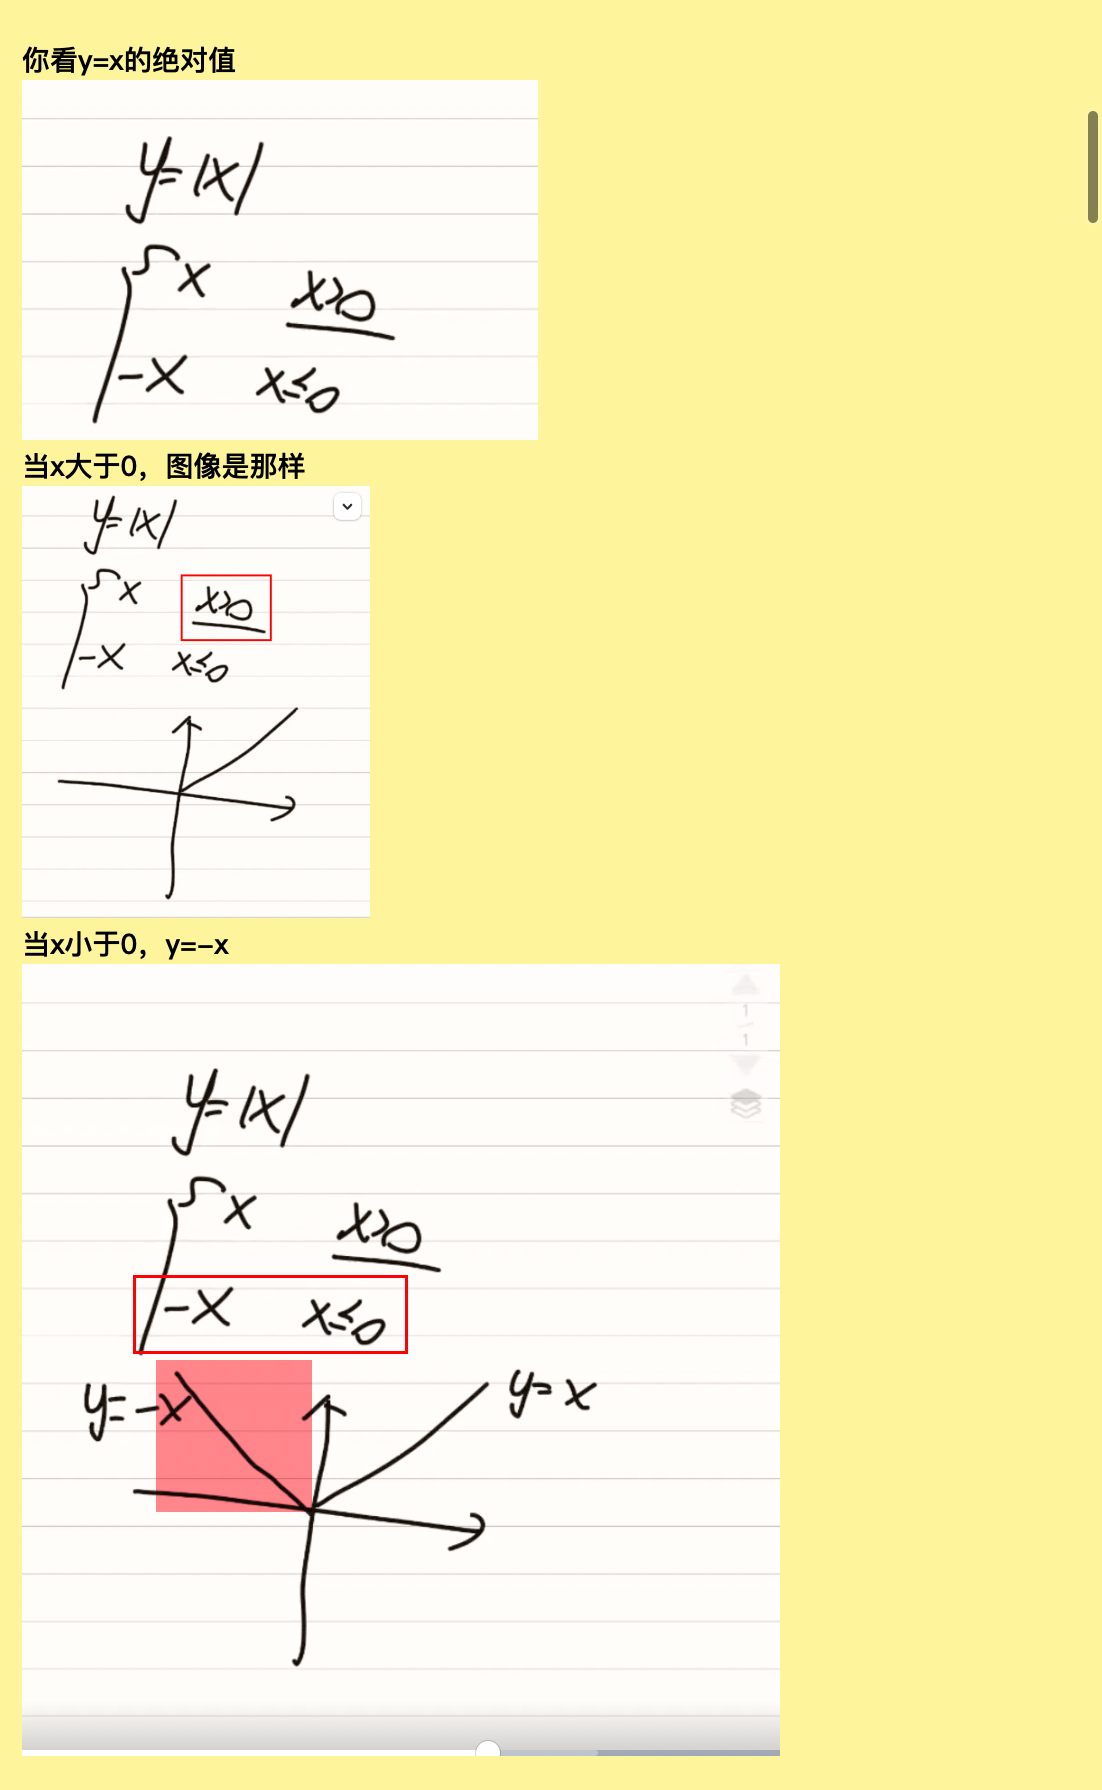 你看y=x的绝对值
y=|x|
x x>0
-x x≤0
当x大于0，图像是那样
y=|x|
x x>0
-x x≤0
当x小于0，y=-x
1
1
y=|x|
x x>0
-x x≤0
y=-x y=x